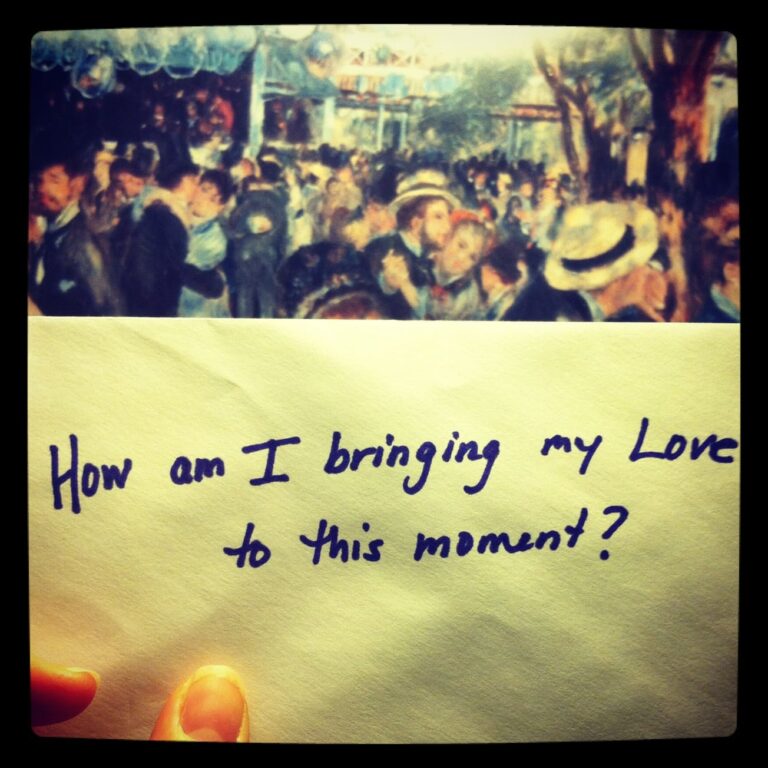 How am I bringing my Love
to this moment?